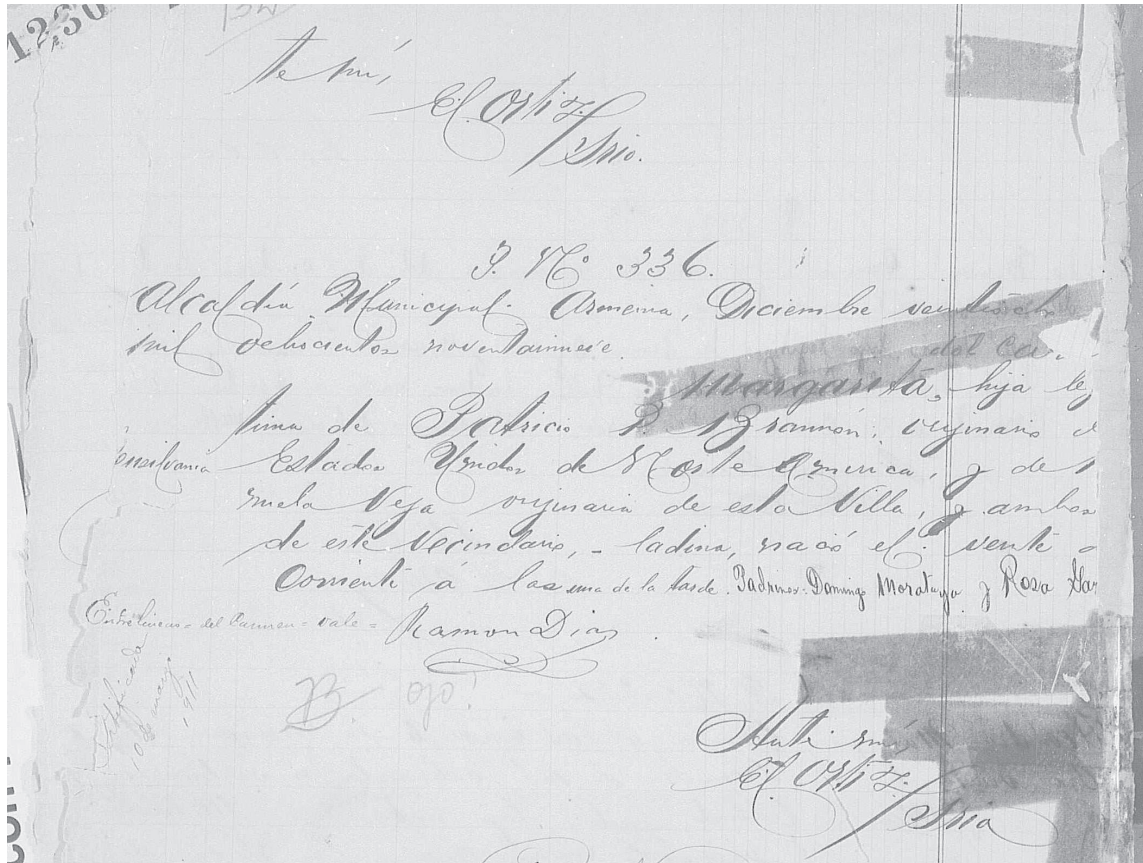 12,30
te mí,
E. Ortiz
Srio.
P. No 336.
Alcaldía Municipal. Armenia, Diciembre veintiocho
mil ochocientos noventainueve.
del Car
Margarita, hija leg
tima de Patricio P. Brannon, orijinario d
ensilvania Estados Unidos de Norte America, y de
mela Veja orijinaria de esta Villa, y ambos
de este Vecindario, - ladina, nació el veinte
Corriente á las una de la tarde. Padrinos: Domingo Morataya y Rosa
Entrelineas = del Carmen = vale = Ramon Dias
Certificada
10 de mayo
1911
ojo
Ante mí,
E. Ortiz
Srio